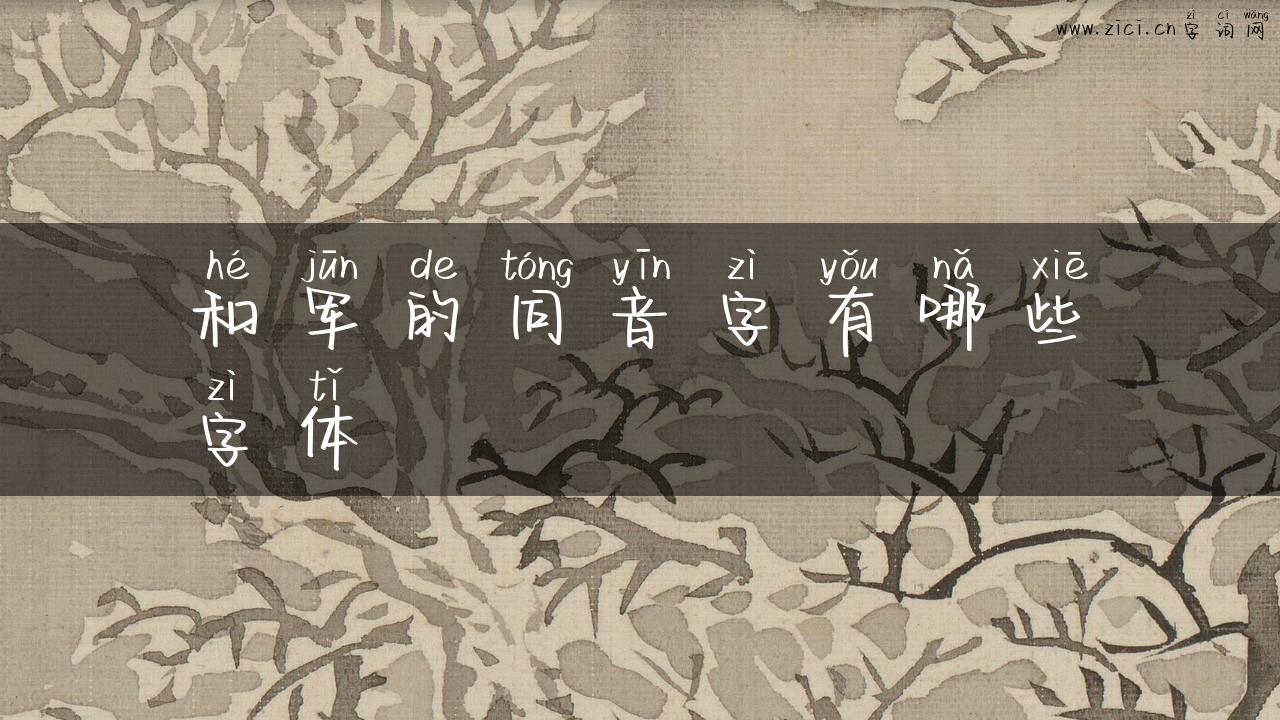 zì cí wǎng
www.zici.cn 字 词 网
hé jūn de tóng yīn zì yǒu nǎ xiē
和 军 的 同 音 字 有 哪 些
zì tǐ
字 体